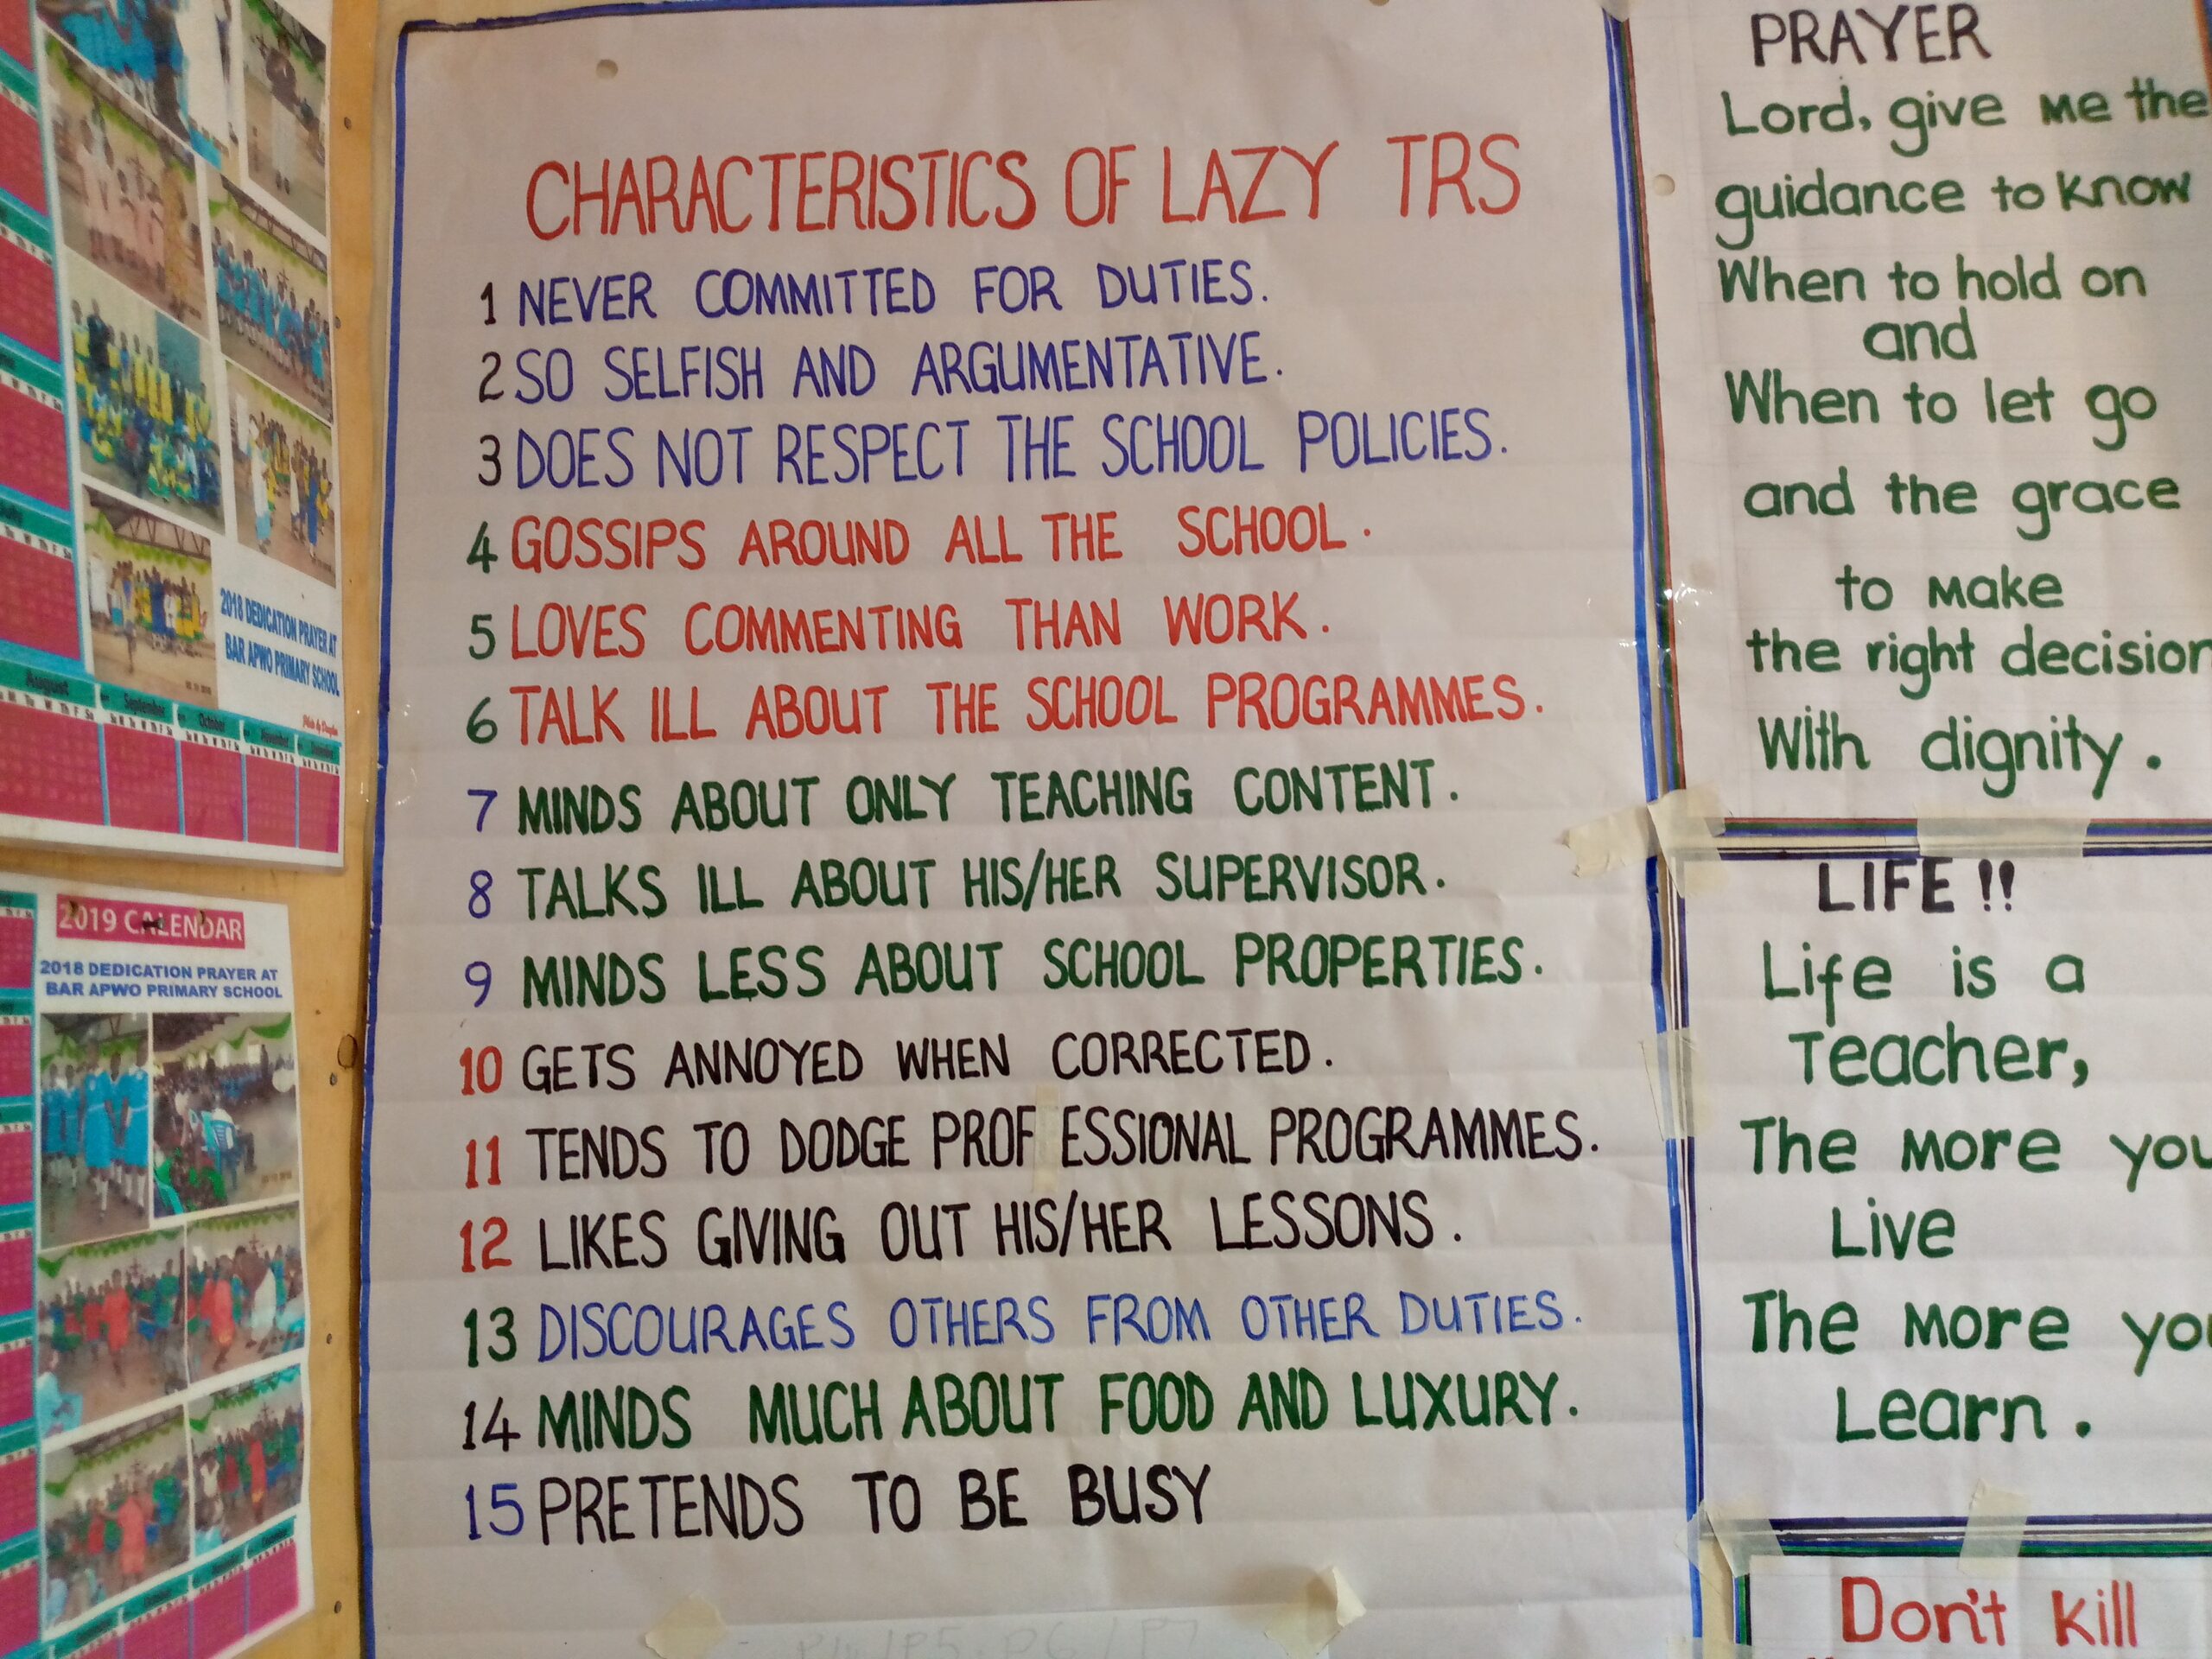 2018 DEDICATION PRAYER AT
BAR APWO PRIMARY SCHOOL
August
September
October
2019 CALENDAR
2018 DEDICATION PRAYER AT
BAR APWO PRIMARY SCHOOL
CHARACTERISTICS OF LAZY TRS
1 NEVER COMMITTED FOR DUTIES.
2 SO SELFISH AND ARGUMENTATIVE.
3 DOES NOT RESPECT THE SCHOOL POLICIES.
4 GOSSIPS AROUND ALL THE SCHOOL.
5 LOVES COMMENTING THAN WORK.
6 TALK ILL ABOUT THE SCHOOL PROGRAMMES.
7 MINDS ABOUT ONLY TEACHING CONTENT.
8 TALKS ILL ABOUT HIS/HER SUPERVISOR.
9 MINDS LESS ABOUT SCHOOL PROPERTIES.
10 GETS ANNOYED WHEN CORRECTED.
11 TENDS TO DODGE PROF ESSIONAL PROGRAMMES.
12 LIKES GIVING OUT HIS/HER LESSONS.
13 DISCOURAGES OTHERS FROM OTHER DUTIES.
14 MINDS MUCH ABOUT FOOD AND LUXURY.
15 PRETENDS TO BE BUSY
PRAYER
Lord, give me the
guidance to know
When to hold on
and
When to let go
and the grace
to make
the right decision
With dignity.
LIFE !!
Life is a
Teacher,
The more you
Live
The more you
Learn.
Don't kill